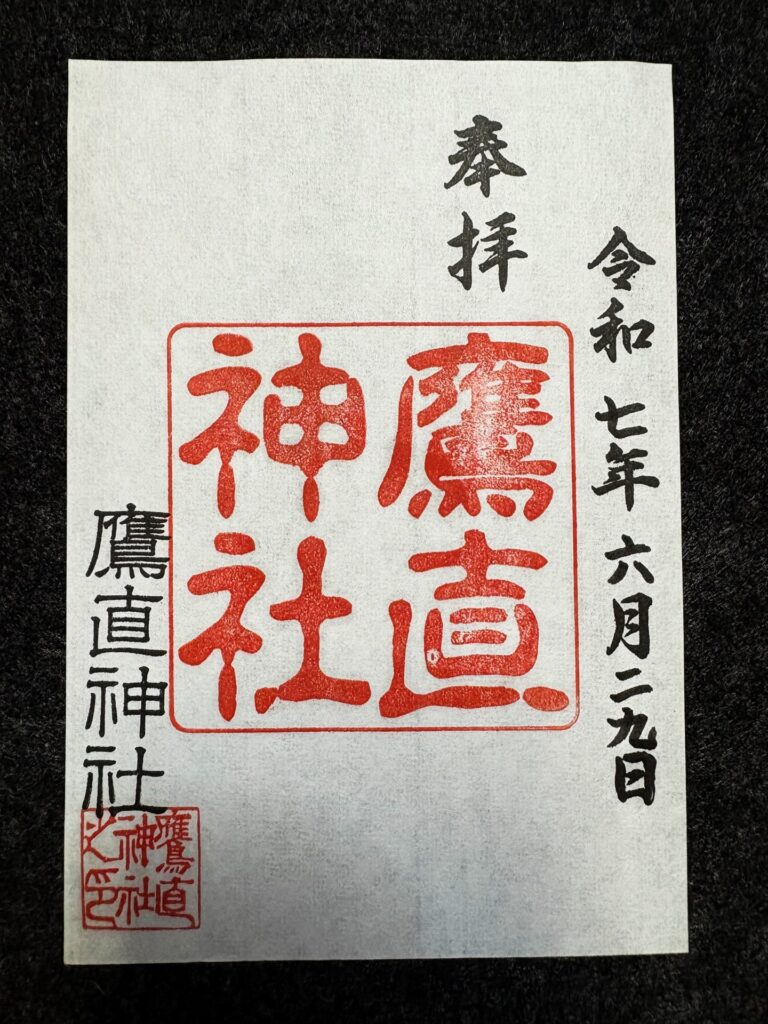 令和 七年 六月 二九日
奉拝
鷹直
神社
鷹直神社
鷹直
神社
之印